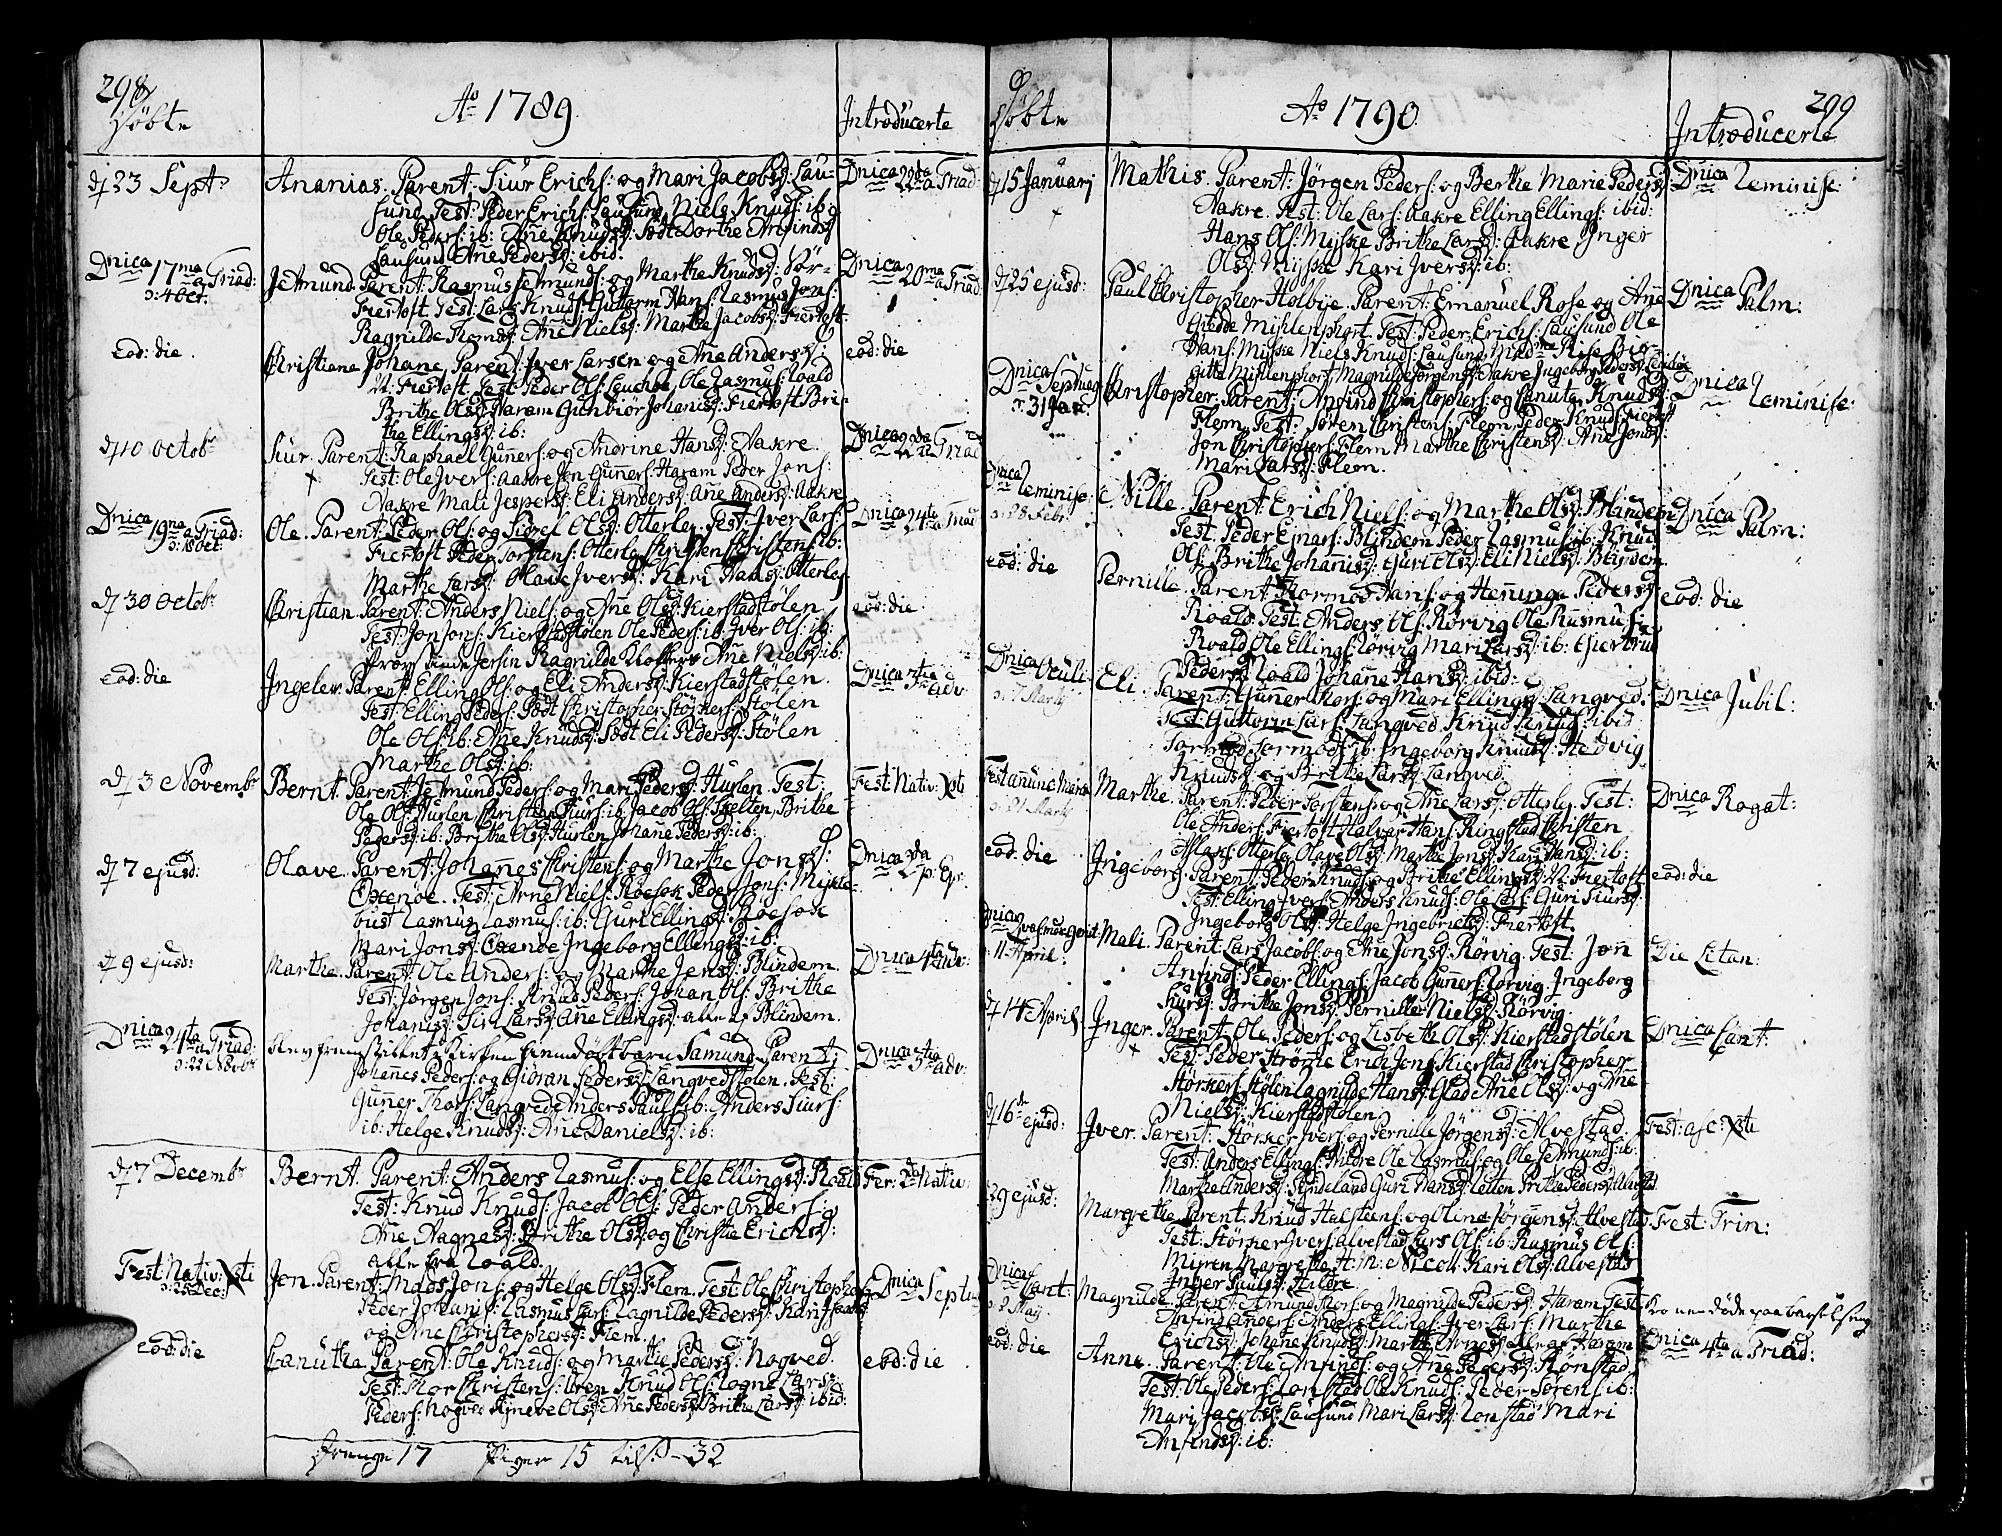 298
Døbte
Ao 1789.
Introducerte
d 23 Septr
Ananias. Parent: Siur Erichs: og Mari Jacobsd: Lau-
sund. Test: Peder Erichs: Lausund, Niels Knuds: ib:
Ole Peders: ib: Ane Knudsd: Sødt Dorthe Anfindsd:
Lausund Ane Pedersd: ibid.
Dnica 22da a Triad:
Dnica 17ma a Triad:
ɔ: 4 Oct.
Jetmund. Parent: Rasmus Jetmunds: og Marthe Knudsd:
Fiertoft. Test: Lars Knuds: Gutorm Hans: Rasmus Jons:
Ragnilde Ane Nielsd: Marthe Jacobsd: Fiertoft
Dnica 20ma a Triad:
eod: die.
Christiana Johane, Parent: Iver Larsen og Ane Andersd:
N: Fiertoft. Test: Peder Ols: Ole Rasmus: Roald
Brithe Olsd: Haram Gunbiør Johanisd: Fiertoft Bri-
the Ellingsd: ib:
eod: die
d 10 Octobr
Siur. Parent: Raphael Gunners: og Andrine Hansd: Aakre
Test: Ole Ivers: Aakre Jon Gunners: Haram Peder Jons:
Aakre Mali Jespersd: Eli Andersd: Ane Andersd: Aakre
Dnica 22da a Triad
Dnica 19na a Triad:
ɔ: 18 Oct:
Ole. Parent: Peder Ols: og Sidsel Olsd: Otterlei. Test: Iver Lars:
Fiertoft Peder Torstens: Otterlei Christen Christens: ib:
Marthe Larsd: Olave Iversd: Kari Hansd: Otterlei
Dnica 24ta a Triad
d 30 Octobr
Christian. Parent: Anders Niels: og Ane Olsd: Kierstadstølen
Test: Jon Jons: Kierstadstølen Ole Peders: ib: Iver Ols: ib:
Ragnilde Ane Nielsd: ib:
eod: die
eod: die
Ingeler. Parent: Elling Ols: og Eli Andersd: Kierstadstølen.
Test: Elling Peders: Sødt Christopher Størkers: Stølen
Ole Ols: ib: Ane Knudsd: Sødt Eli Pedersd: Stølen
Marthe Olsd: ib:
Dnica 3tia Adv:
d 3 Novembr
Bernt. Parent: Jetmund Peders: og Mari Pedersd: Hurlen. Test:
Ole Ols: Hurlen, Christian Siurs: ib: Jacob Ols: Skelten, Brithe
Pedersd: ib: Brithe Olsd: Hurlen Johane Pedersd: ib:
Fest: Nativ: Xsti
d 7 ejusd:
Olave. Parent: Johannes Christens: og Marthe Jonsd:
Oxenøe. Test: Arne Niels: Roesok Peder Jons: Mykle-
bust Rasmus Rasmus: ib: Guri Ellingsd: Roesok
Mari Jonsd: Oxenøe Ingeborg Ellingsd: ib:
Dnica 2da p: Ep:
d 9 ejusd:
Marthe. Parent: Ole Anders: og Marthe Jensd: Blindem.
Test: Jørgen Jons: Knud Peders: Johan Ols: Brithe
Johanisd: Siri Larsd: Ane Ellingsd: alle af Blindem.
Dnica 4ta Adv:
Dnica 24ta a Triad:
ɔ: 22 Novbr
blev fremstillet i Kirken hiemdøbt barn Samund. Parent:
Johannes Peders: og Pedersd: Langvedstølen. Test:
Gunner Thors: Langved Anders Pauls: ib: Anders Siurs:
ib: Helge Knudsd: Ane Danielsd: ib:
Dnica 3tia Adv:
d 7 Decembr
Bernt. Parent: Anders Rasmus: og Else Ellingsd: Roald
Test: Knud Knuds: Jacob Ols: Peder Anders:
Ane Aagnesd: Brithe Olsd: og Christie Erichsd:
alle fra Roald.
Fer: 2da Nativ:
Fest: Nativ: Xsti
ɔ: 25 Dec:
Jon. Parent: Mads Jons: og Helge Olsd: Flem. Test: Ole Christophers:
Peder Johans: Rasmus Lars: Ragnilde Pedersd: Kari Isaacsd:
og Ane Christophersd: Flem.
Dnica Septu
eod: die
Canutha. Parent: Ole Knuds: og Marthe Pedersd: Nogved.
Test: Thor Christens: Knud Ols: Rogne Lars
Peders: Nogved Synneve Olsd: Ane Pedersd: Brithe Larsd: ibid:
eod: die
Drenge 17 Piger 15 tils: 32

299
Døbte
Ao 1790
Introducerte
d 15 Januarj
Mathis. Parent: Jørgen Peders: og Berthe Marie Pedersd:
Aakre. Test: Ole Lars: Aakre Elling Ellings: ibid:
Hans Ols: Myske Brithe Larsd: Aakre, Inger
Olsd: Myske Kari Iversd: ib:
Dnica Reminisc:
d 25 ejusd:
Paul Christopher Holbye. Parent: Emanuel Rose og Ane
Giedde Myhlenphort. Test: Peder Erichs: Lausund Ole
Hans: Myske Niels Knuds: Lausund, Rose Bir-
gitte Myhlenphort, Magnilde Jørgensd: Aakre Ingeborg Pedersd:
Dnica Palm:
Dnica Septuag
ɔ: 31 Jan:
Christopher. Parent: Anfind Christophers: og Canuta Knudsd:
Flem. Test: Søren Carstens: Flem, Peder Knuds: Fiertoft
Jon Christophers: Flem Marthe Christensd: Ane Jonsd:
Mari Larsd: Flem.
Dnica Reminisc:
Dnica Reminisc:
ɔ: 28 Febr:
Nille. Parent: Erich Niels: og Marthe Olsd: Blindem
Test: Peder Ejnars: Blindem Peder Rasmus: ib: Knud
Ols: Brithe Johanisd: Guri Olsd: Eli Nielsd:
Dnica Palm:
eod: die
Pernille. Parent: Tormod Hans: og Henninge Pedersd:
Roald. Test: Anders Ols: Rørvig Ole Rasmus:
Roald Ole Ellings: Rørvig Mari Larsd: ib: Giertrud
Pedersd: Roald Johane Hansd: ibid:
eod: die
Dnica Oculi
ɔ: 7 Martj
Eli. Parent: Gunner Thors: og Mari Ellingsd: Langved.
Test: Guttorm Lars: Langved Knud Lars: ibid
Tormod Tormods: ib: Ingeborg Knudsd: Hedvig
Knudsd: og Brithe Larsd: Langved.
Dnica Jubil:
Fest: anunc Mariæ
ɔ: 21 Martj
Marthe. Parent: Peder Torstens: og Ane Larsd: Otterlei. Test:
Ole Anders: Fiertoft Halvar Hans: Ringstad Christen
Aslaks: Otterlei Olave Olsd: Marthe Jonsd: Kari Hansd: ib:
Dnica Rogat:
eod: die
Ingeborg. Parent: Peder Knuds: og Brithe Ellingsd: N: Fiertoft
Test: Elling Ivers: Anders Knuds: Ole Lars: Guri Siursd:
Ingeborg Olsd: Helge Ingebrictsd: Fiertoft.
eod: die
Dnica Qvasimodogenit:
ɔ: 11 April:
Mali. Parent: Lars Jacobs: og Ane Jonsd: Rørvig. Test: Jon
Anfinds: Peder Ellings: Jacob Gunners: Rørvig. Ingeborg
Siursd: Brithe Jonsd: Pernille Nielsd: Rørvig.
Die Litan:
d 14 April:
Inger. Parent: Ole Peders: og Lisbeth Olsd: Kierstadstølen
Test: Peder Strømme Erich Jons: Kierstad Christopher
Størkers: Stølen Ragnilde Hansd: Ulstad Ane Olsd: og Ane
Nielsd: Kierstadstølen.
Dnica Cant:
d 16de ejusd:
Iver. Parent: Størker Ivers: og Pernille Jørgensd: Alvestad.
Test: Anders Ellings: Hildre Ole Rasmus: og Ole Jetmunds: ib:
Marthe Andersd: Guri Hansd: Leiten Brithe Pedersd: Alvestad
Fest: Asc: Xsti
29 ejusd:
Margrethe. Parent: Knud Halstens: og Oline Jørgensd: Alvestad
Test: Størker Ivers: Alvestad Lars Ols: ib: Rasmus Ols:
Myren Margrethe H: M: Nicol: Kari Olsd: Alvestad
Inger Paulsd: Hildre.
Fest: Trin:
Dnica Cant:
ɔ: 2 Maij
Magnilde. Parent: Amund Thors: og Magnilde Pedersd: Haram. Test:
Anfind Anders: Anders Ellings: Iver Lars: Marthe
Erichsd: Johane Knudsd: Marthe Arnesd: alle af Haram
Konen døde paa barselseng
eod: die
Anne. Parent: Ole Anfinds: og Ane Pedersd: Rønstad
Test: Ole Peders: Ronstad Ole Knuds: Peder Sørens: ib:
Mari Jacobsd: Lausund Mari Larsd: Ronstad Mari
Anfindsd: ib:
Dnica 4ta a Triad: